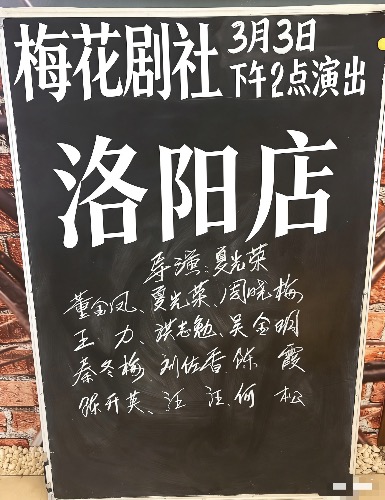 梅花剧社 3月3日
下午2点演出
洛阳店
导演:夏光荣
董金凤、夏光荣、周晓梅
王 力、洪志勉、吴金明
秦冬梅 刘佐香 陈 霞
张开英、汪 汪、何 松